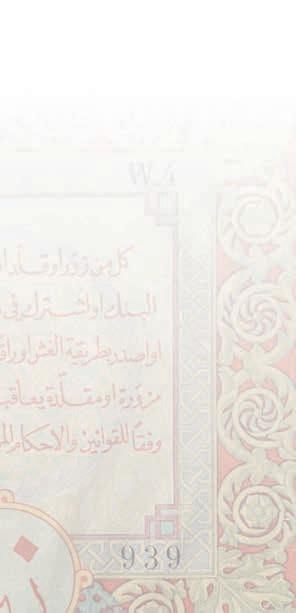 W.A
كل من زوّر او قلّد
البنك او اشترك في
او اصدر بطريقة الغش اوراق
مزوّرة او مقلّدة يعاقب
وفقاً للقوانين والاحكام
939